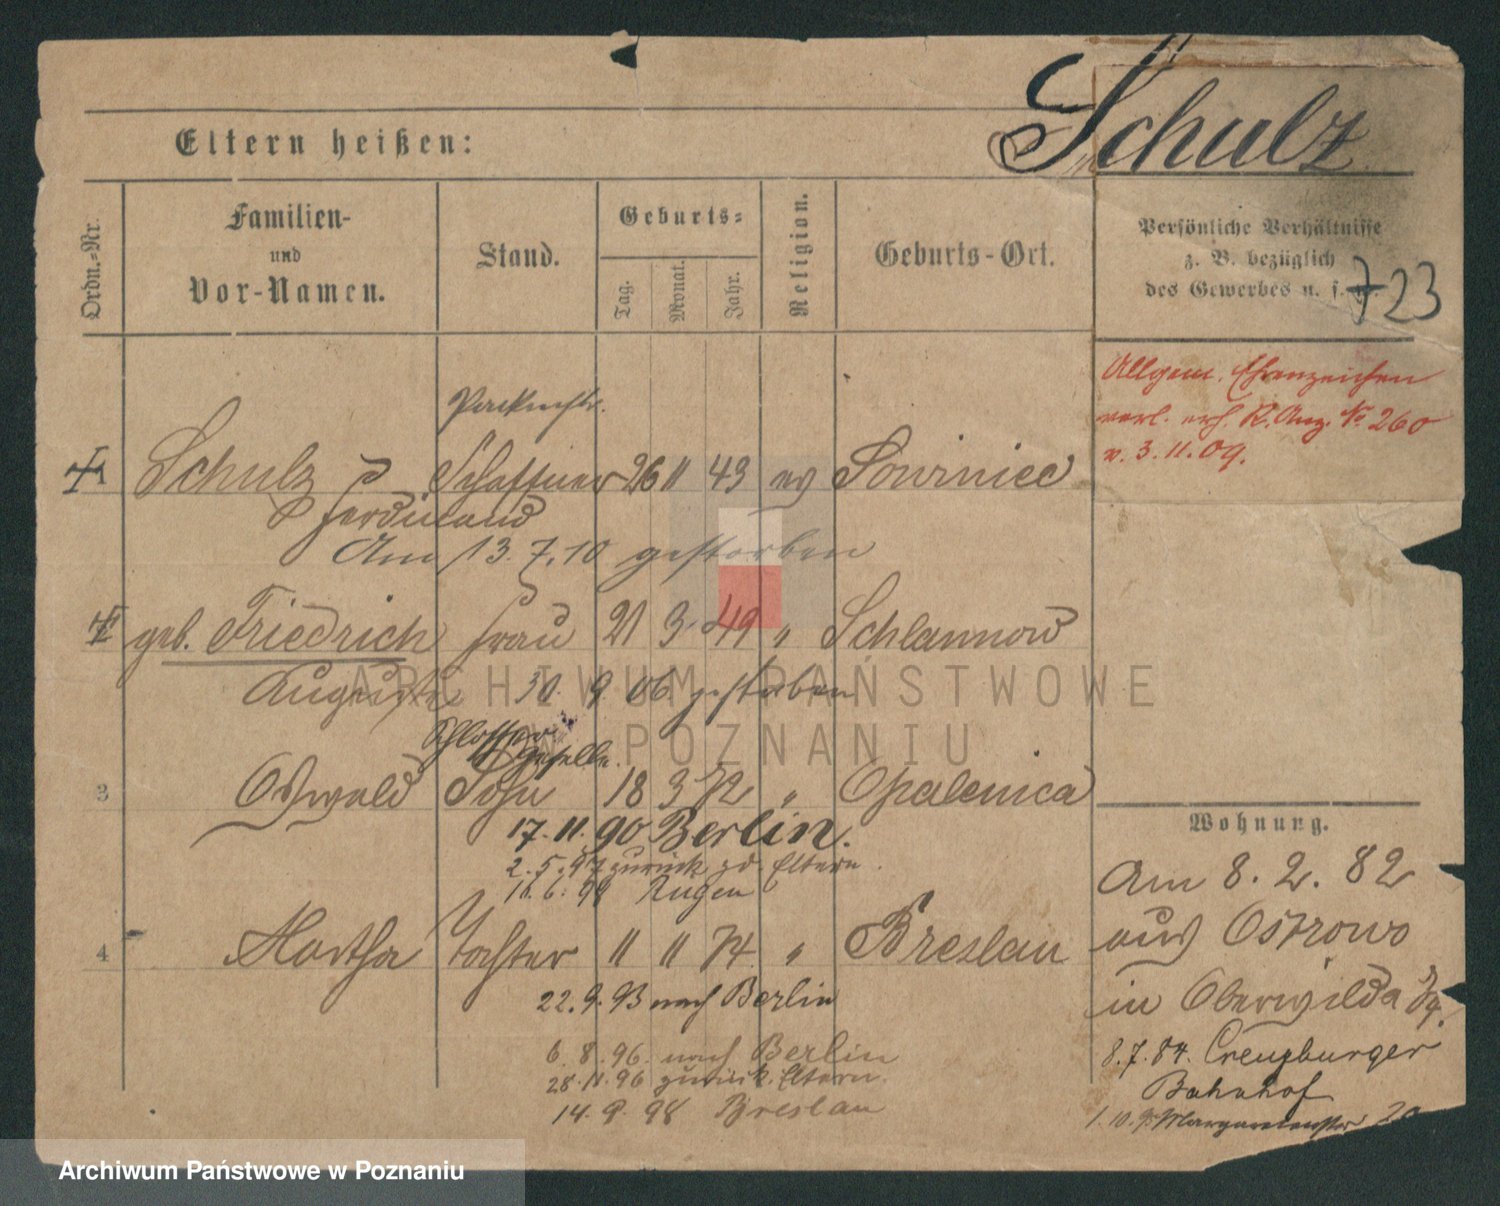 Schulz
Eltern heißen:
Ordn.-Nr.
Familien-
und
Vor-Namen.
Stand.
Geburts-
Tag.
Monat.
Jahr.
Religion.
Geburts-Ort.
Persönliche Verhältnisse
z. B. bezüglich
des Gewerbes u. s. w.
723
Allgem. Ehrenzeichen
verl. R. Anz. No 260
v. 3.11.09.
Schulz Schaffner 26 11 43 ev Sowiniec
Ferdinand
Am 13.7.10 gestorben
geb. Friedrich Frau 21 3 49 " Schlannow
Auguste 30. 9. 06 gestorben
Schlosser
Geselle.
3 Oswald Sohn 18 3 72 " Opalenica
17. 11. 90 Berlin.
2. 5. 97 zurück zd. Eltern.
Rügen
4 Martha Tochter 11 11 74 " Breslau
22. 9. 93 nach Berlin
6. 8. 96. nach Berlin
28. 11. 96 zurück. Eltern.
14. 9. 98 Breslau
Wohnung.
Am 8. 2. 82
aus Ostrowo
in Oberwilda
8. 7. 84. Creuzburger
Bahnhof
ARCHIWUM PAŃSTWOWE
W POZNANIU
Archiwum Państwowe w Poznaniu